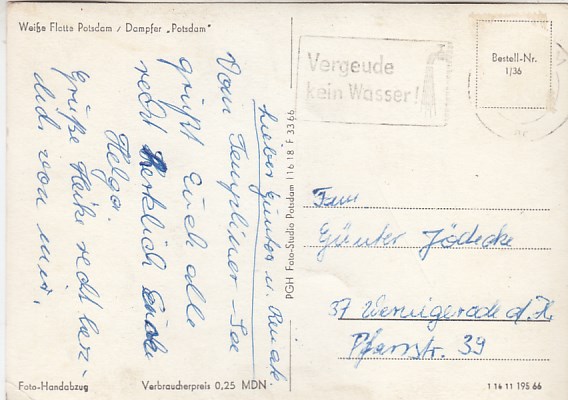 Weiße Flotte Potsdam / Dampfer „Potsdam"
Vergeude
kein Wasser!
Bestell-Nr.
1/36
Lieber Günter u.
Vom Templiner-See
grüßt Euch alle
recht herzlich Eure
Helga.
Grüße Heike recht herz-
lich von mir.
PGH Foto-Studio Potsdam I 16 18 F 33 66
Fam
Günter
37 Wernigerode d. H.
Pfarrstr. 39
Foto-Handabzug
Verbraucherpreis 0,25 MDN
1 16 11 195 66